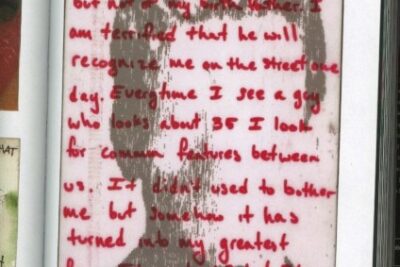 but not of my birth father. I
am terrified that he will
recognize me on the street one
day. Everytime I see a guy
who looks about 35 I look
for common features between
us. It didn't used to bother
me but somehow it has
turned into my greatest
HAT